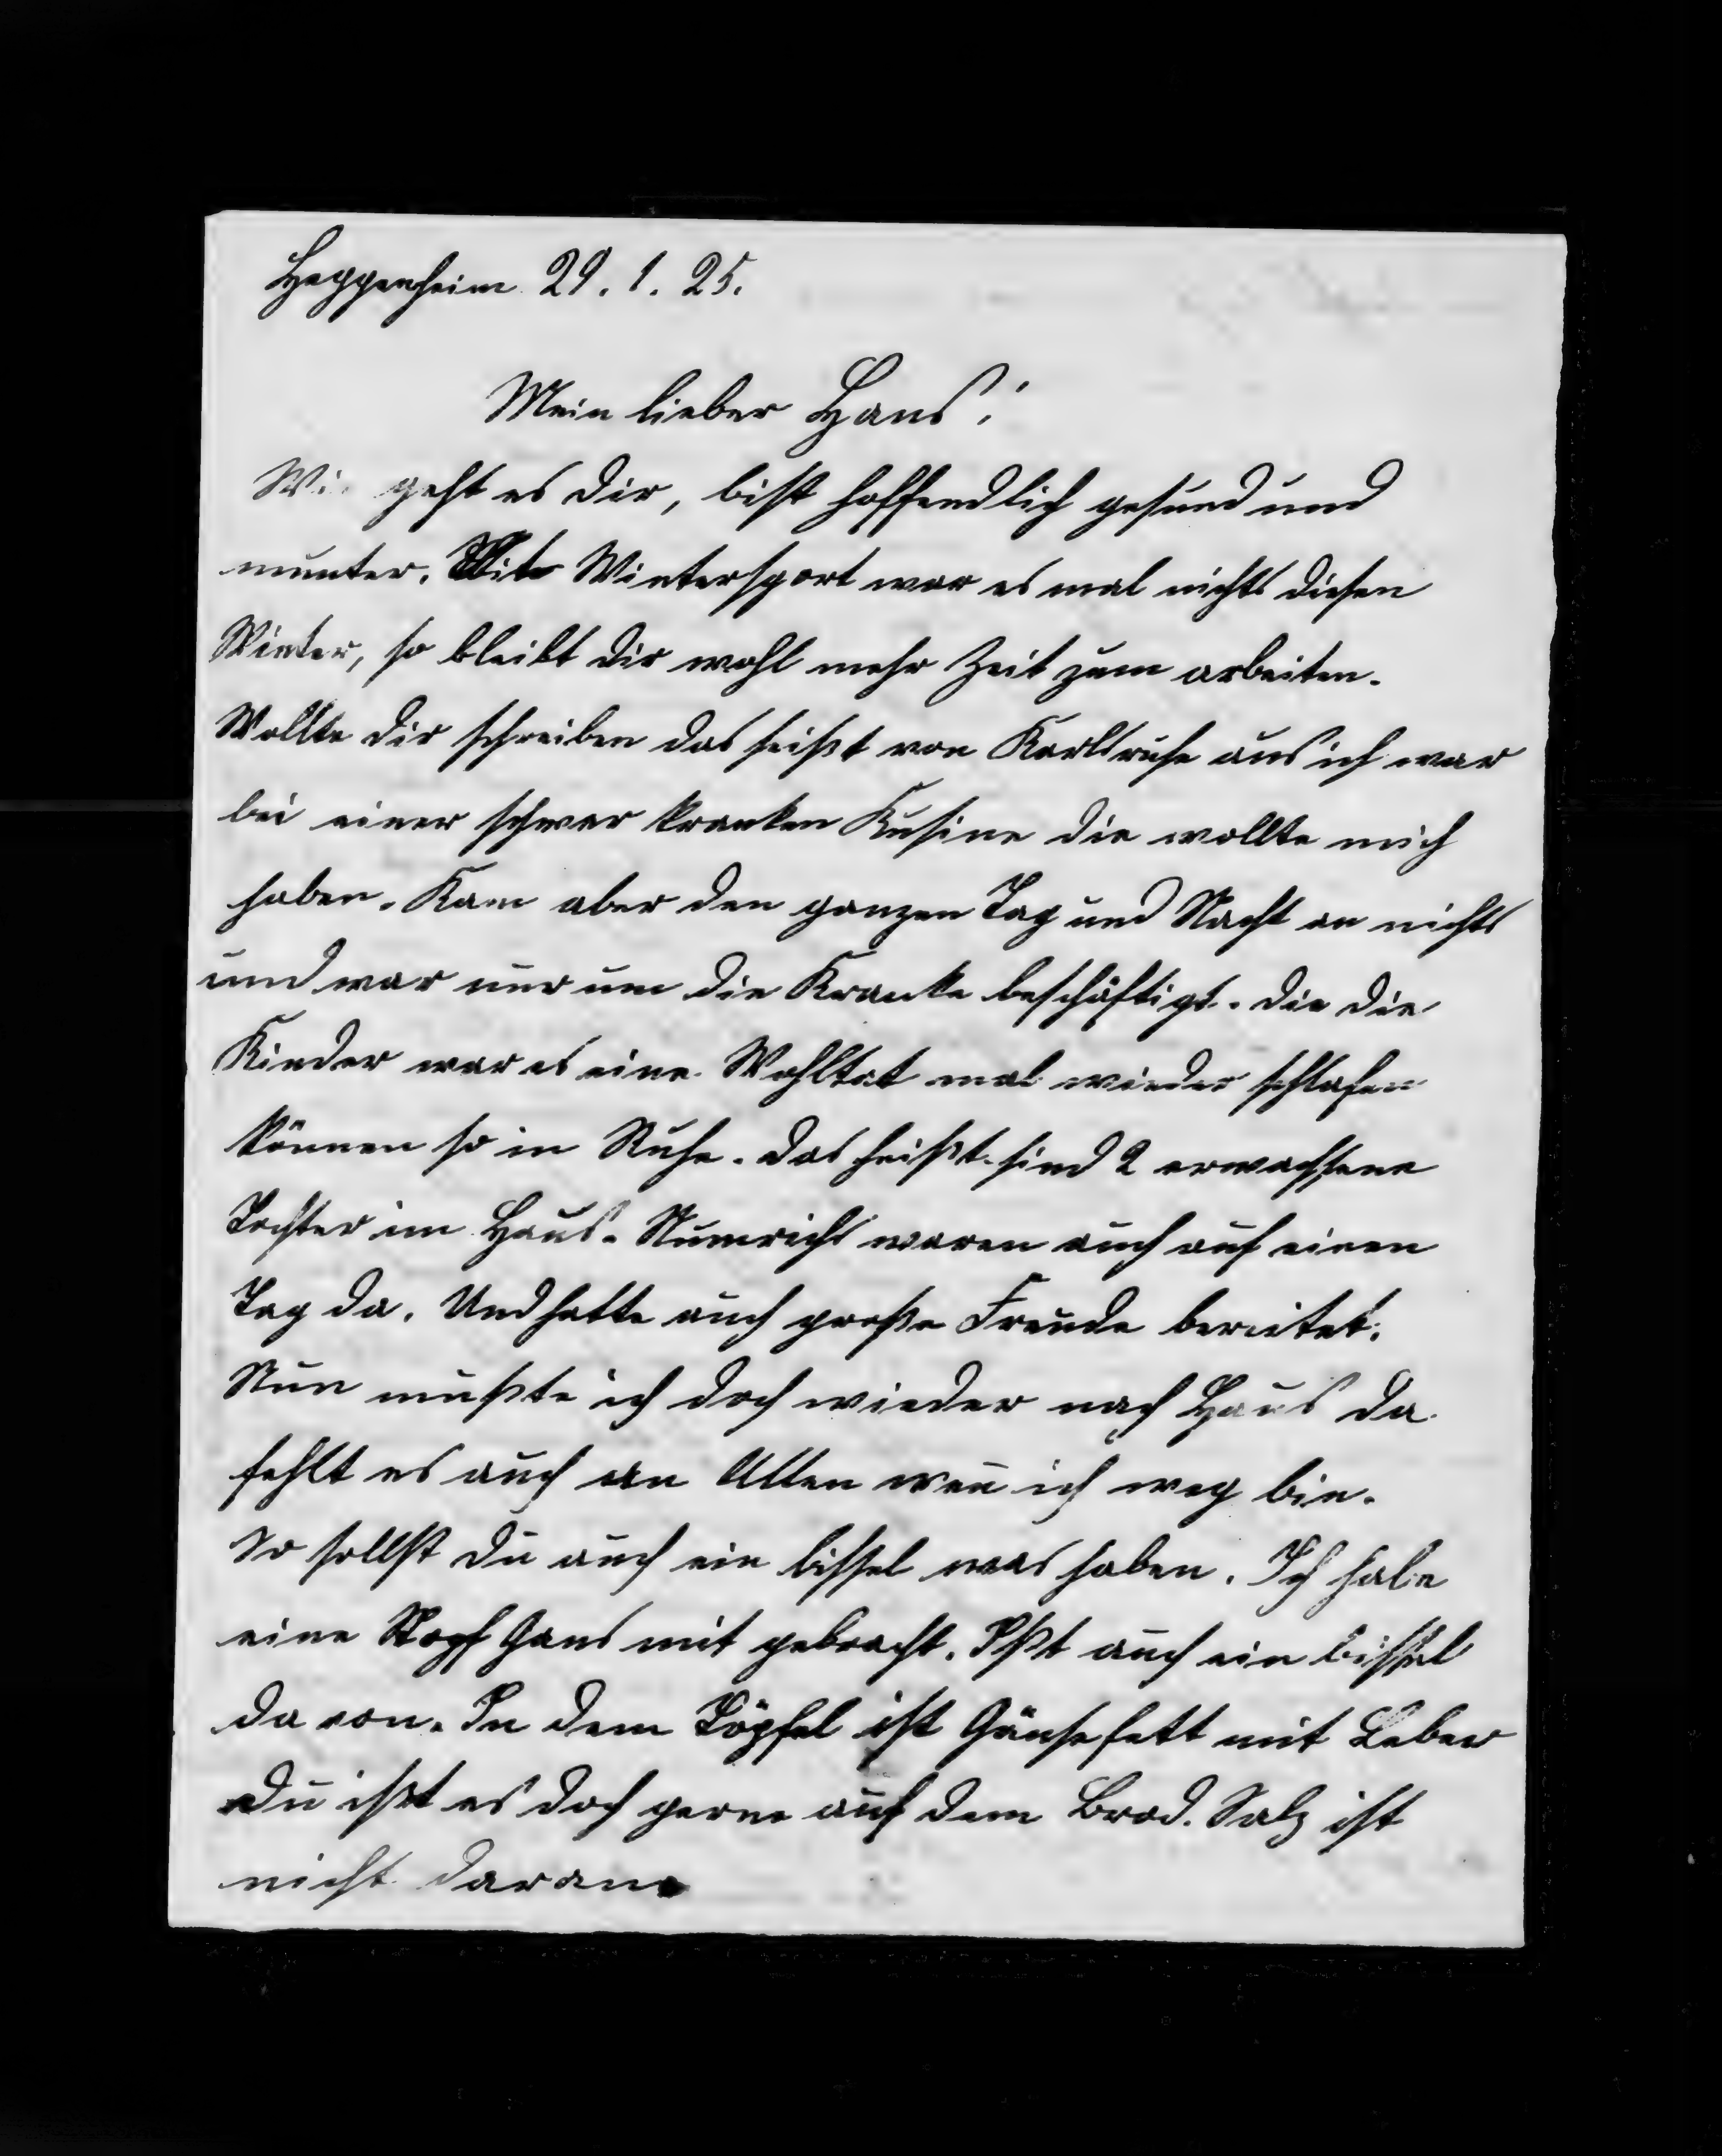 Heppenheim 29.1.25.
Mein lieber Hans!
Wie geht es dir, bist hoffendlich gesund und
munter. Mit Wintersport war es mal nichts diesen
Winter, so bleibt dir wohl mehr Zeit zum arbeiten.
Wollte dir schreiben das heißt von Karlsruhe aus ich war
bei einer schwer kranken Kusine die wollte mich
haben. Kam aber den ganzen Tag und Nacht an nichts
und war nur um die Kranke beschäftigt. die die
Kinder war es eine Wohltat mal wieder schlafen
können so in Ruhe. das heißt sind 2 erwachsene
Tochter im Haus. waren auch auf einen
Tag da. Und hatte auch große Freude bereitet.
Nun mußte ich doch wieder nach Haus da
fehlt es auch an Allen wen̄ ich weg bin.
So sollst du auch ein bissel was haben. Ich habe
eine Stopf Gans mit gebracht. Ißt auch ein bissel
da von. In dem Töpfel ist Gänsefett mit Leber
du ißt es doch gerne auf dem Brod. Salz ist
nicht daran.